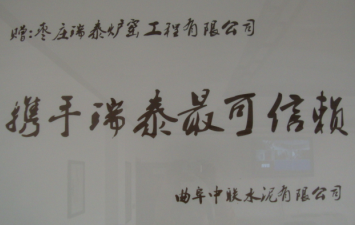 赠:枣庄瑞泰炉窑工程有限公司
携手瑞泰最可信赖
曲阜中联水泥有限公司